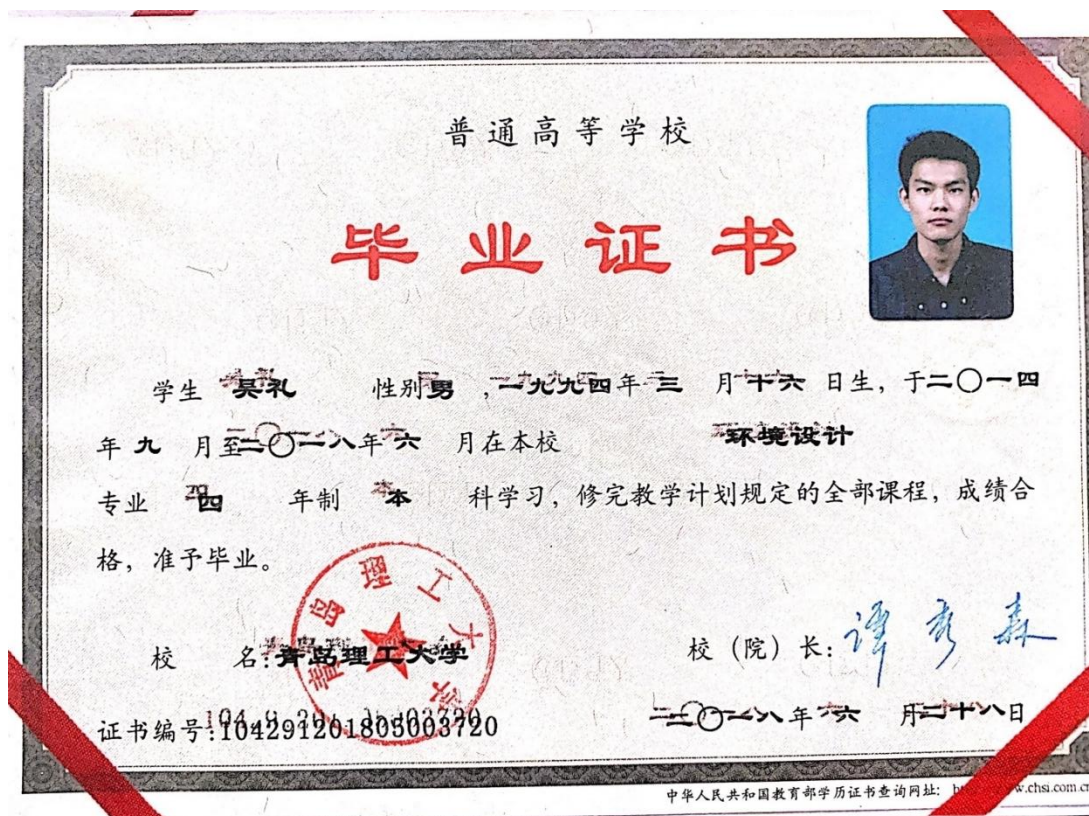 普通高等学校
毕业证书
学生 吴礼 性别男 ,一九九四年三 月十六 日生, 于二〇一四
年九 月至二〇一八年六 月在本校 环境设计
专业 四 年制 本 科学习, 修完教学计划规定的全部课程, 成绩合
格, 准予毕业。
青岛理工大学
校 名:青岛理工大学
校 (院) 长: 谭秀森
证书编号:104291201805003720
二〇一八年六 月二十八日
中华人民共和国教育部学历证书查询网址: w.chsi.com.cn